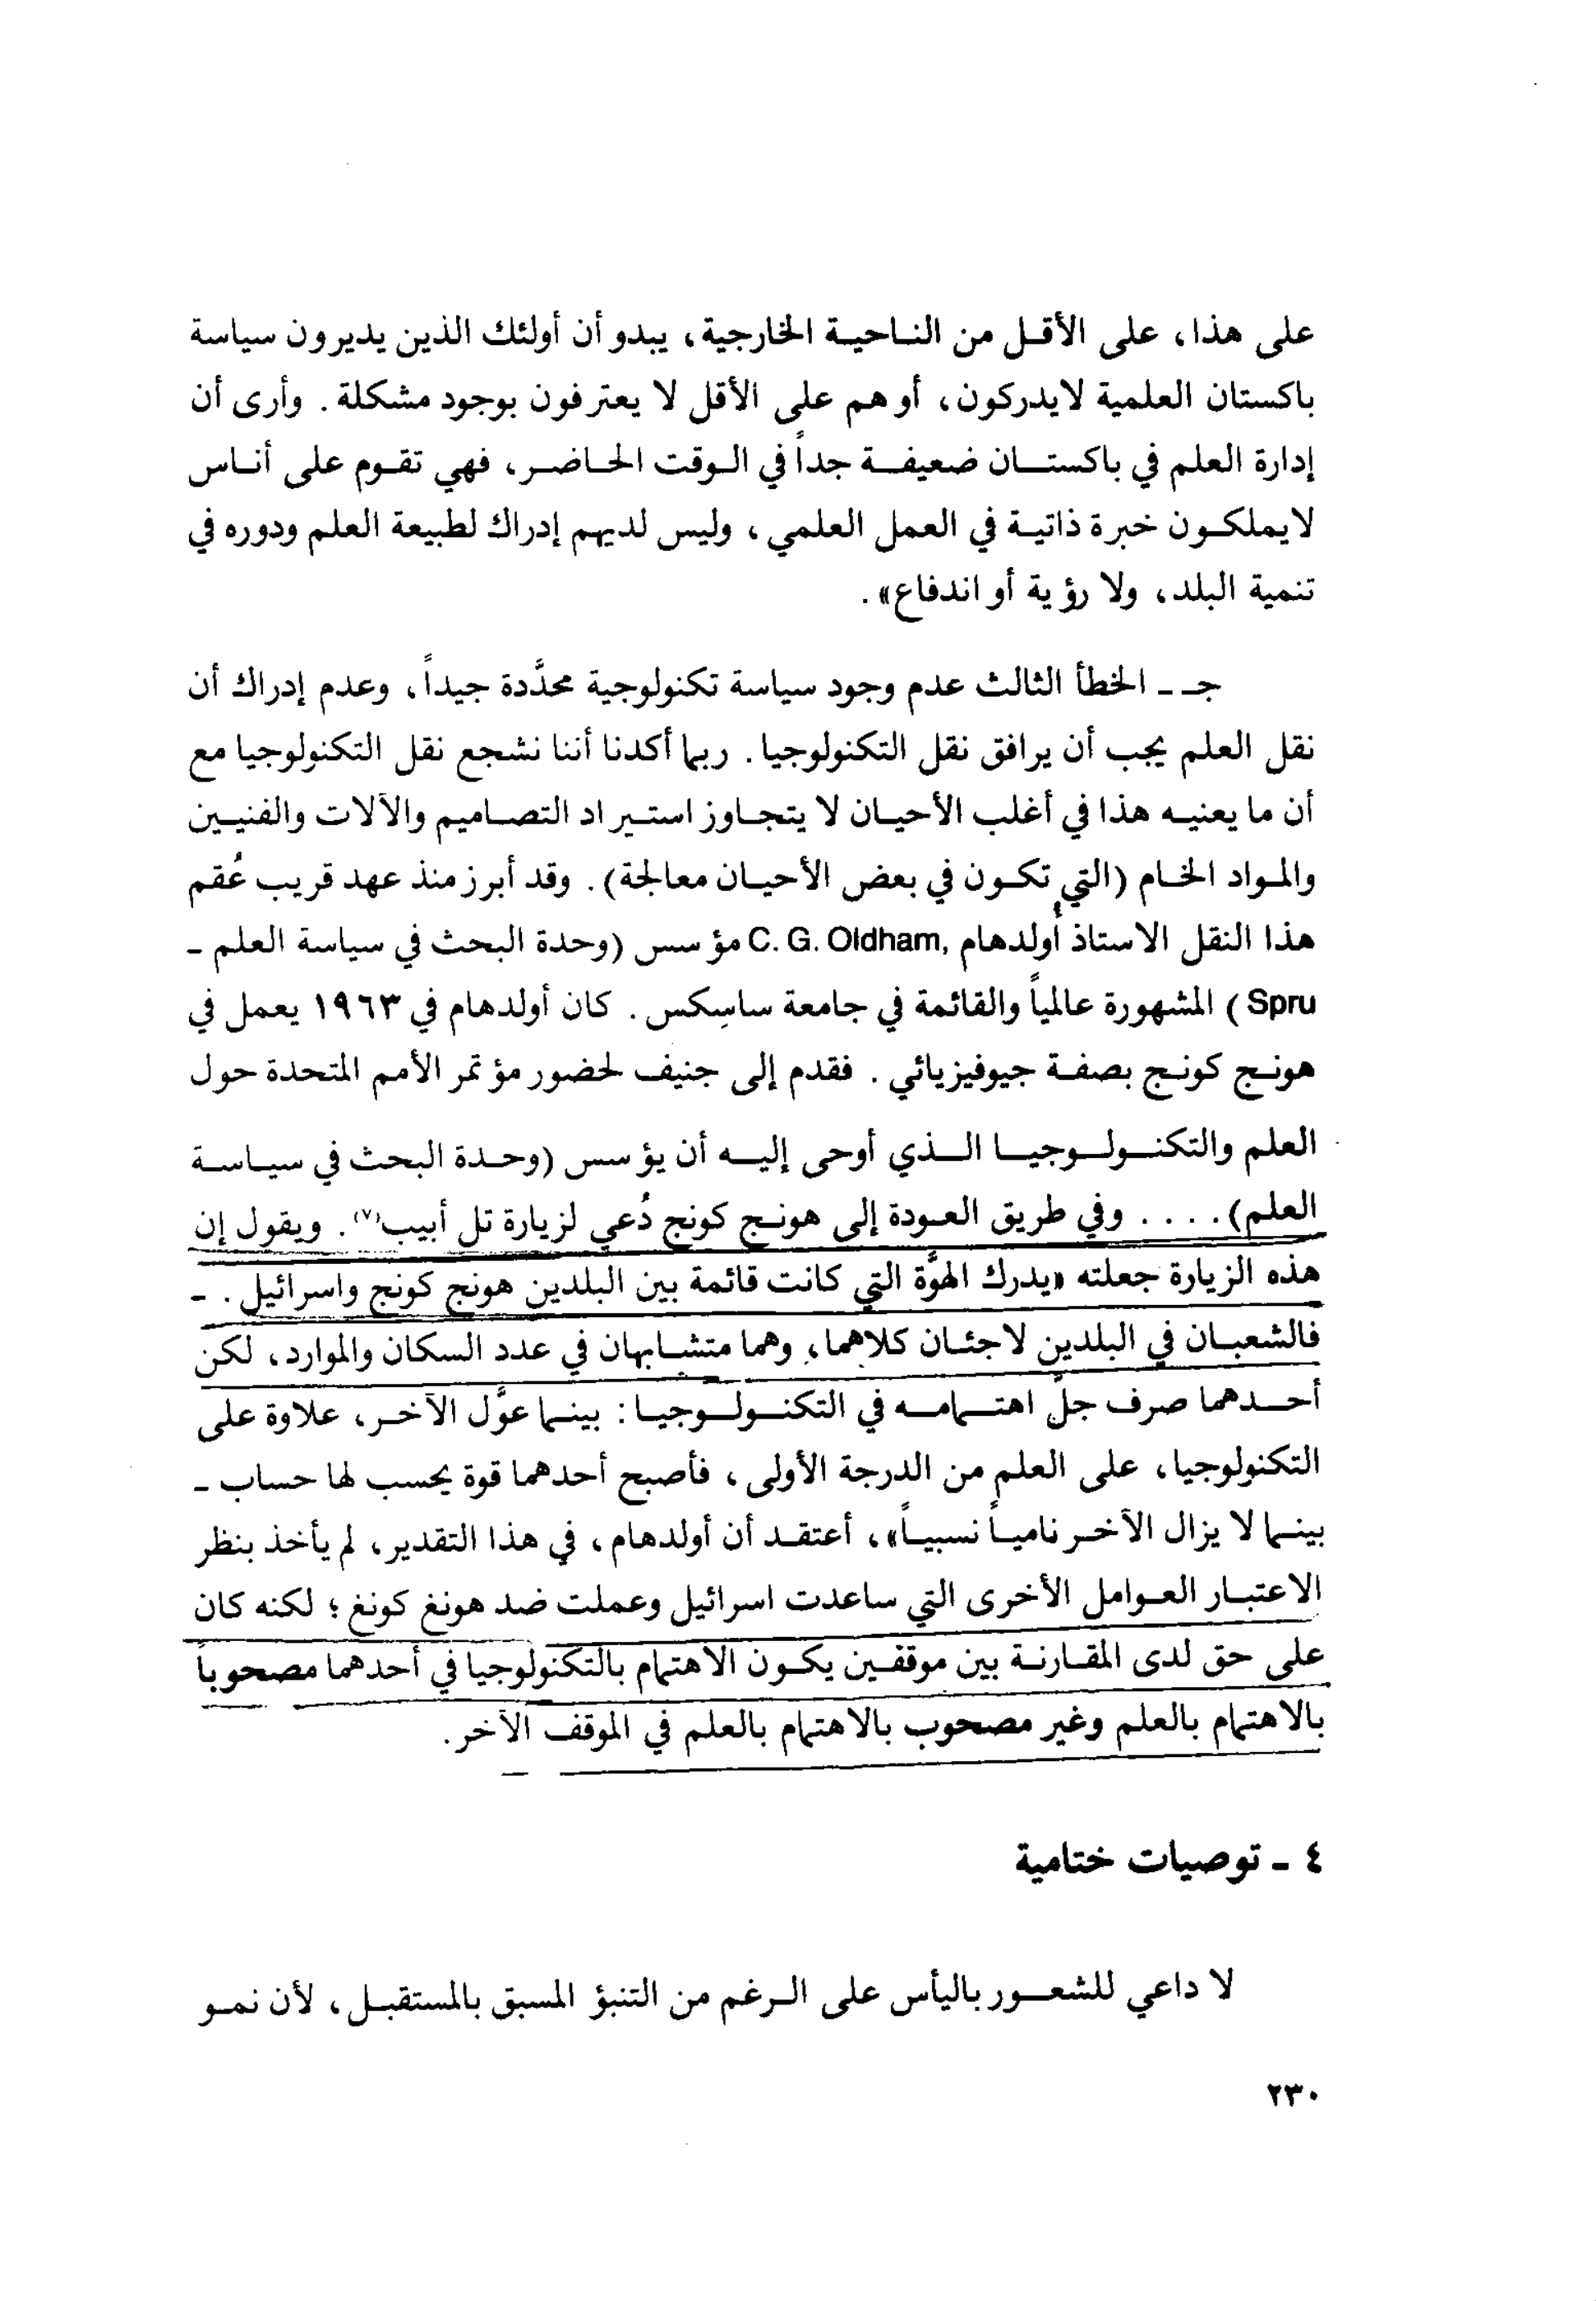 على هذا، على الأقل من الناحية الخارجية، يبدو أن أولئك الذين يديرون سياسة
باكستان العلمية لايدركون، أو هم على الأقل لا يعترفون بوجود مشكلة. وأرى أن
إدارة العلم في باكستان ضعيفة جداً في الوقت الحاضر، فهي تقوم على أناس
لايملكون خبرة ذاتية في العمل العلمي، وليس لديهم إدراك لطبيعة العلم ودوره في
تنمية البلد، ولا رؤية أو اندفاع».
جـ - الخطأ الثالث عدم وجود سياسة تكنولوجية محدَّدة جيداً، وعدم إدراك أن
نقل العلم يجب أن يرافق نقل التكنولوجيا. ربما أكدنا أننا نشجع نقل التكنولوجيا مع
أن ما يعنيه هذا في أغلب الأحيان لا يتجاوز استيراد التصاميم والآلات والفنيين
والمواد الخام (التي تكون في بعض الأحيان معالجة). وقد أبرز منذ عهد قريب عُقم
هذا النقل الاستاذ أولدهام C. G. Oldham, مؤسس (وحدة البحث في سياسة العلم -
Spru) المشهورة عالمياً والقائمة في جامعة ساسكس. كان أولدهام في ١٩٦٣ يعمل في
هونج كونج بصفة جيوفيزيائي. فقدم إلى جنيف لحضور مؤتمر الأمم المتحدة حول
العلم والتكنولوجيا الذي أوحى إليه أن يؤسس (وحدة البحث في سياسة
العلم).... وفي طريق العودة إلى هونج كونج دُعي لزيارة تل أبيب(٧). ويقول إن
هذه الزيارة جعلته «يدرك الهوَّة التي كانت قائمة بين البلدين هونج كونج واسرائيل. -
فالشعبان في البلدين لاجئان كلاهما، وهما متشابهان في عدد السكان والموارد، لكن
أحدهما صرف جلّ اهتمامه في التكنولوجيا: بينما عوَّل الآخر، علاوة على
التكنولوجيا، على العلم من الدرجة الأولى، فأصبح أحدهما قوة يحسب لها حساب -
بينما لا يزال الآخر نامياً نسبياً»، أعتقد أن أولدهام، في هذا التقدير، لم يأخذ بنظر
الاعتبار العوامل الأخرى التي ساعدت اسرائيل وعملت ضد هونغ كونغ؛ لكنه كان
على حق لدى المقارنة بين موقفين يكون الاهتمام بالتكنولوجيا في أحدهما مصحوباً
بالاهتمام بالعلم وغير مصحوب بالاهتمام بالعلم في الموقف الآخر.
٤ - توصيات ختامية
لا داعي للشعور باليأس على الرغم من التنبؤ المسبق بالمستقبل، لأن نمو
٢٣٠